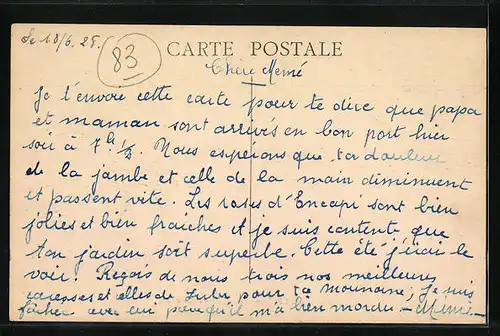 Le 10/6. 28.
83
CARTE POSTALE
Chère Mémé
Je t'envoie cette carte pour te dire que papa
et maman sont arrivés en bon port hier
soir à 7h 1/2. Nous espérons que ta douleur
de la jambe et celle de la main diminuent
et passent vite. Les roses d'Encapi sont bien
jolies et bien fraîches et je suis contente que
ton jardin soit superbe. Cette été j'irai le
voir. Reçois de nous trois nos meilleures
caresses et celles de pour ta mounoine; je suis
fâchée avec lui parcequ'il m'a bien mordu - Mimi -